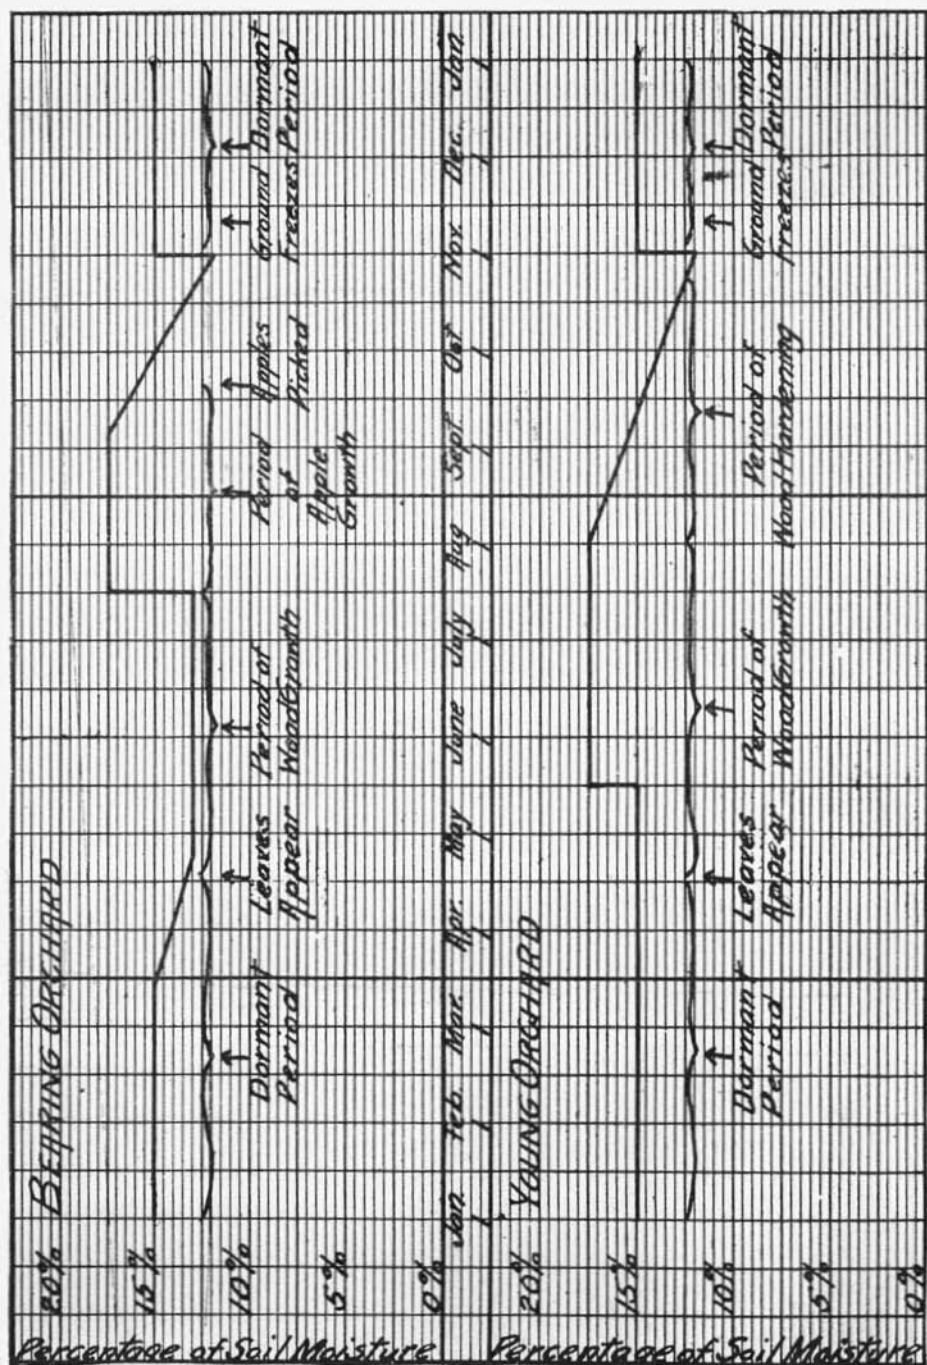 BEARING ORCHARD
Percentage of Soil Moisture
20%
15%
10%
5%
0%
Dormant
Period
Leaves
Appear
Period of
Wood Growth
Period
of
Apple
Growth
Apples
Picked
Ground
Freezes
Dormant
Period
Jan. Feb. Mar. Apr. May June July Aug Sept Oct Nov. Dec. Jan.
YOUNG ORCHARD
Percentage of Soil Moisture
20%
15%
10%
5%
0%
Dormant
Period
Leaves
Appear
Period of
Wood Growth
Period of
Wood Hardening
Ground
Freezes
Dormant
Period